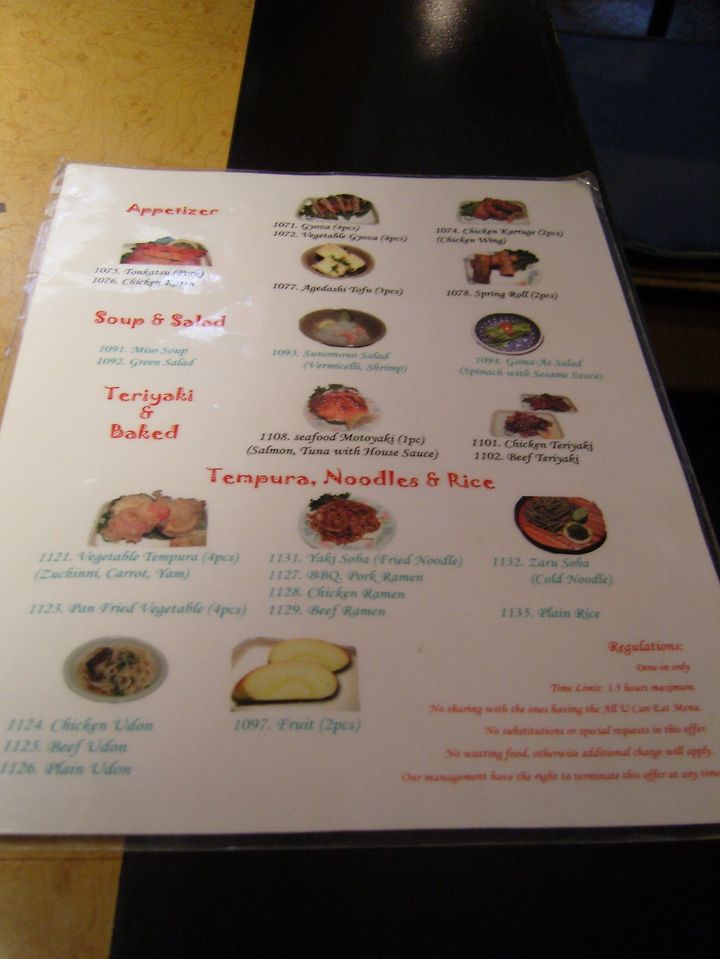 Appetizer
1071. Gyoza (4pcs)
1072. Vegetable Gyoza (4pcs)
1074. Chicken Karrage (2pcs)
(Chicken Wing)
1075. Tonkatsu (Pork)
1076. Chicken Katsu
1077. Agedashi Tofu (3pcs)
1078. Spring Roll (2pcs)
Soup & Salad
1091. Miso Soup
1092. Green Salad
1093. Sunomono Salad
(Vermicelli, Shrimp)
1094. Goma-Ae Salad
(Spinach with Sesame Sauce)
Teriyaki
&
Baked
1108. seafood Motoyaki (1pc)
(Salmon, Tuna with House Sauce)
1101. Chicken Teriyaki
1102. Beef Teriyaki
Tempura, Noodles & Rice
1121. Vegetable Tempura (4pcs)
(Zuchinni, Carrot, Yam)
1123. Pan Fried Vegetable (4pcs)
1131. Yaki Soba (Fried Noodle)
1127. BBQ. Pork Ramen
1128. Chicken Ramen
1129. Beef Ramen
1132. Zaru Soba
(Cold Noodle)
1135. Plain Rice
1124. Chicken Udon
1125. Beef Udon
1126. Plain Udon
1097. Fruit (2pcs)
Regulations:
Dine-in only
Time Limit: 1.5 hours maximum.
No sharing with the ones having the All U Can Eat Menu.
No substitutions or special requests in this offer.
No wasting food, otherwise additional charge will apply.
Our management have the right to terminate this offer at any time